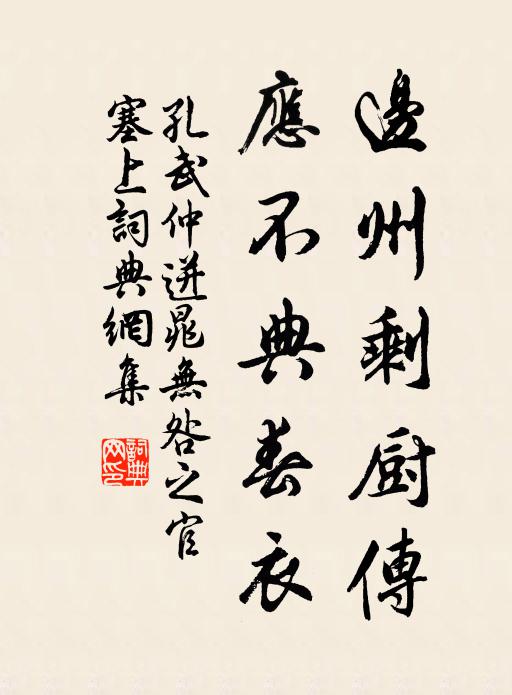 邊州剩厨傳
應不典春衣
孔武仲送晁無咎之官
塞上詞典網集
詞典網印